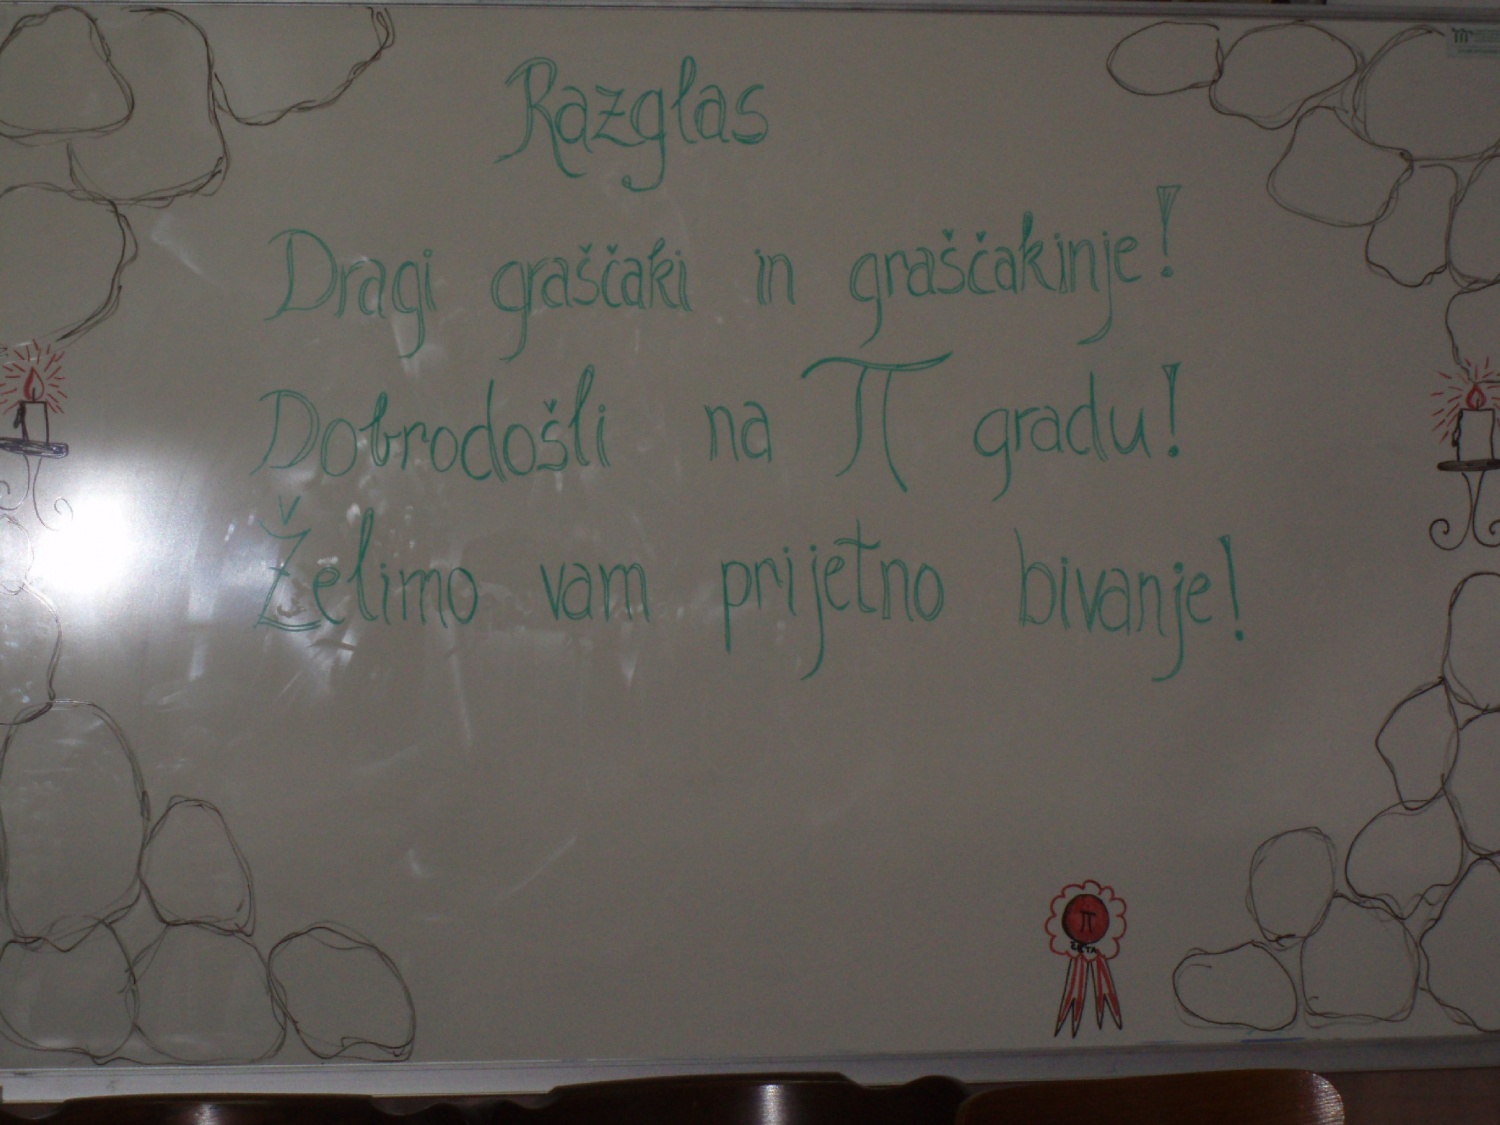 Razglas
Dragi graščaki in graščakinje!
Dobrodošli na π gradu!
Želimo vam prijetno bivanje!
π